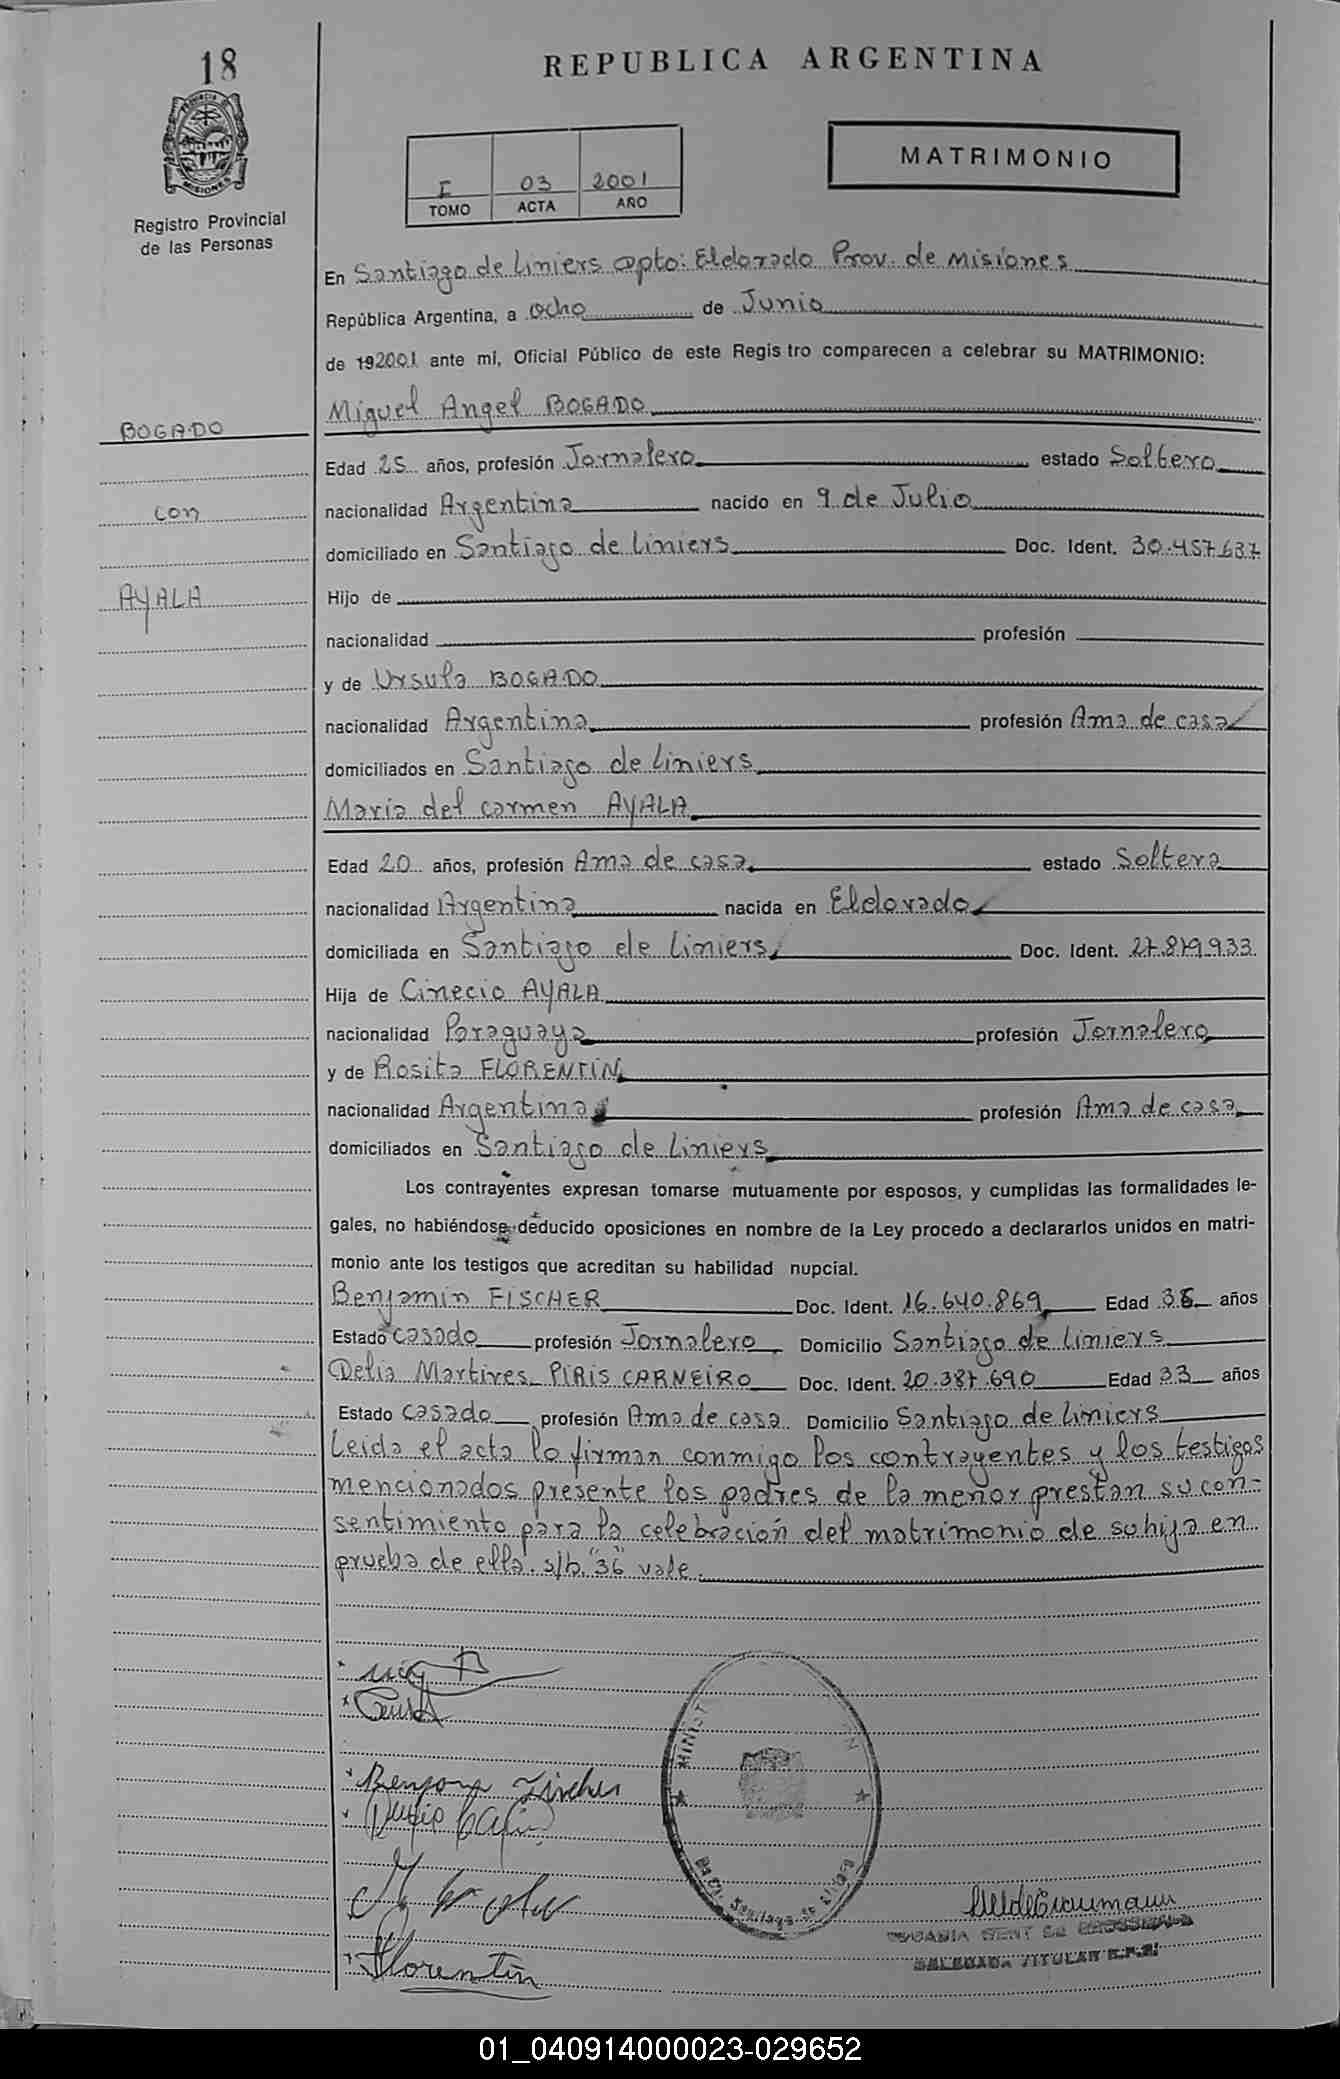 18
REPUBLICA ARGENTINA
MATRIMONIO
I 03 2001
TOMO ACTA AÑO
Registro Provincial
de las Personas
En Santiago de Liniers Dpto: Eldorado Prov. de Misiones
República Argentina, a Ocho de Junio
de 192001 ante mí, Oficial Público de este Regis tro comparecen a celebrar su MATRIMONIO:
Miguel Angel BOGADO
BOGADO
Edad 25 años, profesión Jornalero estado Soltero
con
nacionalidad Argentina nacido en 9 de Julio
domiciliado en Santiago de Liniers Doc. Ident. 30.457.637
AYALA
Hijo de
nacionalidad profesión
y de Ursula BOGADO
nacionalidad Argentina profesión Ama de casa
domiciliados en Santiago de Liniers
Maria del carmen AYALA
Edad 20 años, profesión Ama de casa estado Soltera
nacionalidad Argentina nacida en Eldorado
domiciliada en Santiago de Liniers Doc. Ident. 27.879.933
Hija de Cinecio AYALA
nacionalidad Paraguaya profesión Jornalero
y de Rosita FLORENTIN
nacionalidad Argentina profesión Ama de casa
domiciliados en Santiago de Liniers
Los contrayentes expresan tomarse mutuamente por esposos, y cumplidas las formalidades le-
gales, no habiéndose deducido oposiciones en nombre de la Ley procedo a declararlos unidos en matri-
monio ante los testigos que acreditan su habilidad nupcial.
Benjamin FISCHER Doc. Ident. 16.640.869 Edad 36 años
Estado casado profesión Jornalero Domicilio Santiago de Liniers
Delia Martires PIRIS CARNEIRO Doc. Ident. 20.387.690 Edad 33 años
Estado casado profesión Ama de casa Domicilio Santiago de Liniers
Leida el acta lo firman conmigo los contrayentes y los testigos
mencionados presente los padres de la menor prestan su con-
sentimiento para la celebración del matrimonio de su hija en
prueba de ella. s/b. "36" vale.
Florentin
01_040914000023-029652